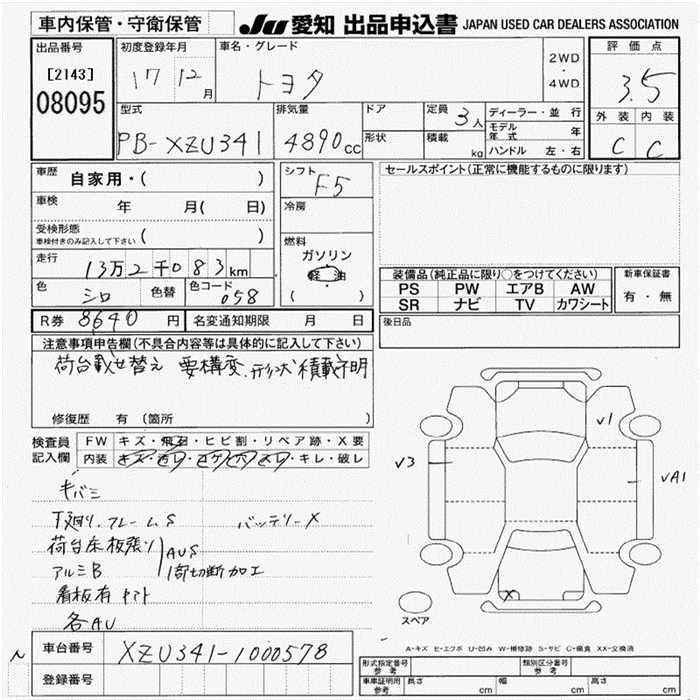 車内保管・守衛保管
JU 愛知 出品申込書 JAPAN USED CAR DEALERS ASSOCIATION
出品番号
[2143]
08095
初度登録年月
17 12月
車名・グレード
トヨタ
2WD
・
4WD
評価点
3.5
外装 内装
C C
型式
PB-XZU341
排気量
4890cc
ドア
形状
定員 3人
積載 kg
ディーラー・並行
モデル年式 年
ハンドル 左・右
車歴 自家用・( )
車検 年 月( 日)
受検形態
車検付きのみ記入して下さい ( )
走行 13万2千083km
色 シロ
色替
色コード 058
シフト F5
冷房
燃料
ガソリン
軽油
( )
R券 8640円
名変通知期限 月 日
セールスポイント(正常に機能するものに限ります)
装備品(純正品に限り○をつけてください)
PS PW エアB AW
SR ナビ TV カワシート
新車保証書
有・無
後日品
注意事項申告欄(不具合内容等は具体的に記入して下さい)
荷台載せ替え 要構変.形状積載不明
修復歴 有 (箇所 )
検査員
記入欄
FW キズ・飛石・ヒビ割・リペア跡・X要
内装 キズ・汚レ・コゲ・穴・スレ・キレ・破レ
キバミ
下廻り.フレームS バッテリーX
荷台床板張り
アルミB
AUS
1部切断加工
看板有 ヤマト
各AU
V1
V3
VA1
X
スペア
A-キズ E-エクボ U-凹み W-補修跡 S-サビ C-腐食 XX-交換済
N
車台番号 XZU341-1000578
登録番号
形式指定番号
参考
類別区分番号
参考
車車証明用
参考
長さ cm
幅 cm
高さ cm